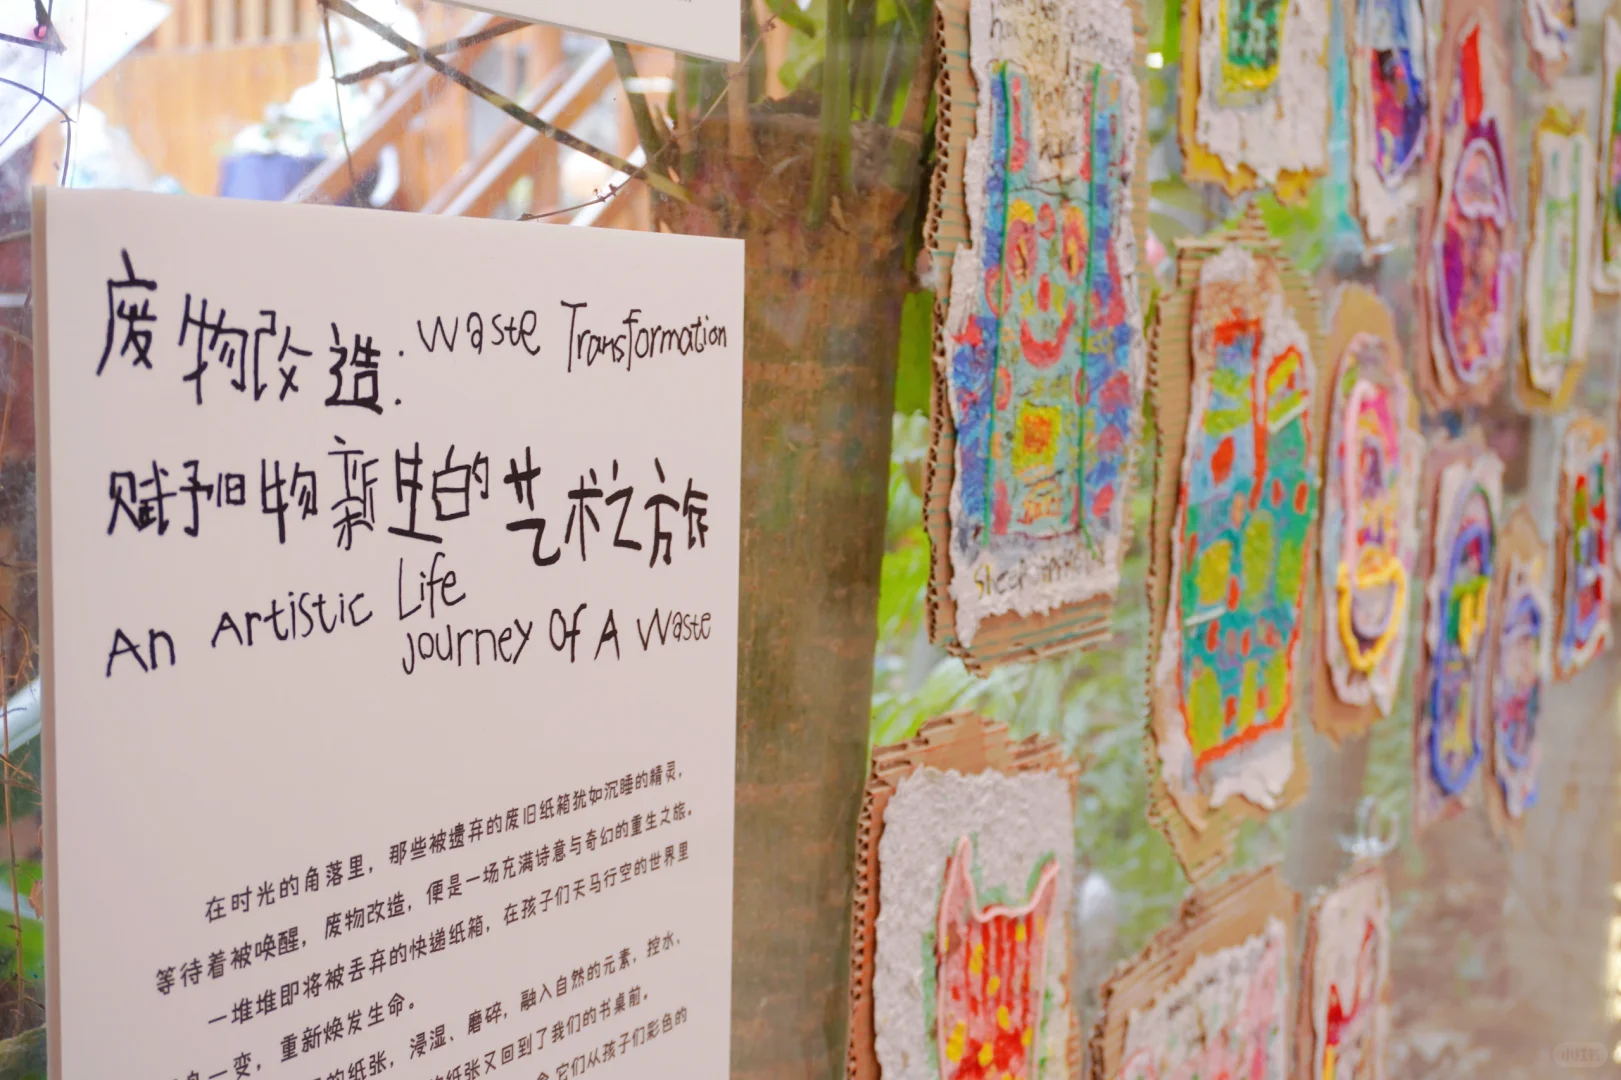 废物改造: Waste Transformation
赋予旧物新生的艺术之旅
An Artistic Life
Journey Of A Waste
在时光的角落里，那些被遗弃的废旧纸箱犹如沉睡的精灵，
等待着被唤醒，废物改造，便是一场充满诗意与奇幻的重生之旅。
一堆堆即将被丢弃的快递纸箱，在孩子们天马行空的世界里
一变，重新焕发生命。
的纸张，浸湿、磨碎，融入自然的元素，控水、
纸张又回到了我们的书桌前。
它们从孩子们彩色的
小红书